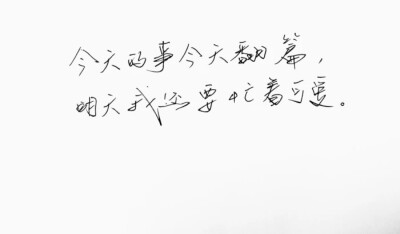 今天的事今天翻篇，
明天我还要忙着可爱。